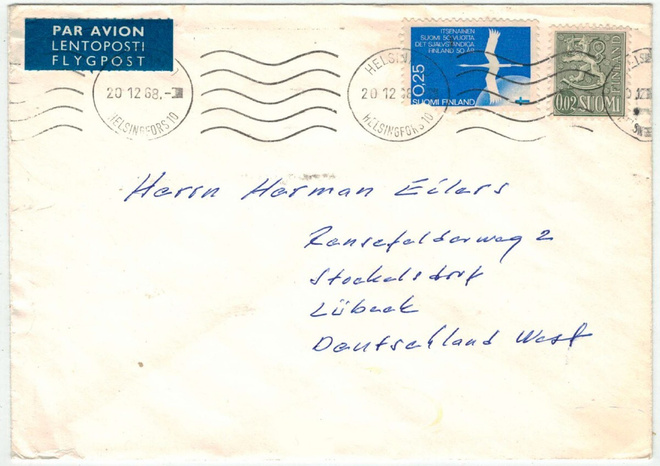 PAR AVION
LENTOPOSTI
FLYGPOST
HELSINGFORS 10
20 12 68.-
HELSIN
20 12 68
HELSINGFORS 10
ITSENÄINEN
SUOMI 50 VUOTTA
DET SJÄLVSTÄNDIGA
FINLAND 50 ÅR
0,25
SUOMI FINLAND
FINLAND
0,02 SUOMI
Herrn Harman Eilers
Ransefelderweg 2
Stockelsdorf
Lübeck
Deutschland West